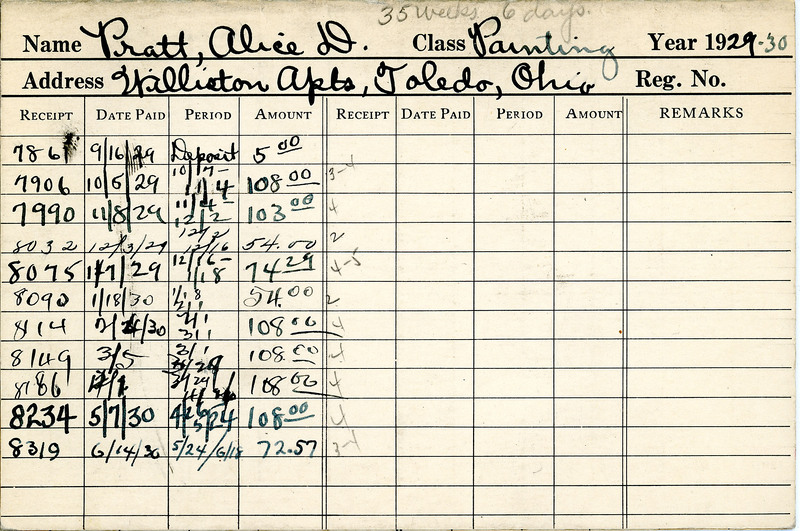 35 weeks 6 days.
Name Pratt, Alice D. Class Painting Year 1929-30
Address Williston Apts, Toledo, Ohio Reg. No.
RECEIPT DATE PAID PERIOD AMOUNT RECEIPT DATE PAID PERIOD AMOUNT REMARKS
7861 9/16/29 Deposit 5 00
7906 10/5/29 10/7- 11/4 108 00 3-4
7990 11/8/29 11/4- 12/2 103 00 4
8032 12/3/29 12/2 12/16 54.00 2
8075 1/7/29 12/16- 1/18 74 29 4-5
8090 1/18/30 1/18 2/1 54.00 2
8114 2/1 3/1 108 00 4
8149 3/5 3/1 3/29 108.00 4
8186 3/29 108 00 4
8234 5/7/30 4/26 5/24 108 00 4
8319 6/14/30 5/24/6/18 72.57 3-4